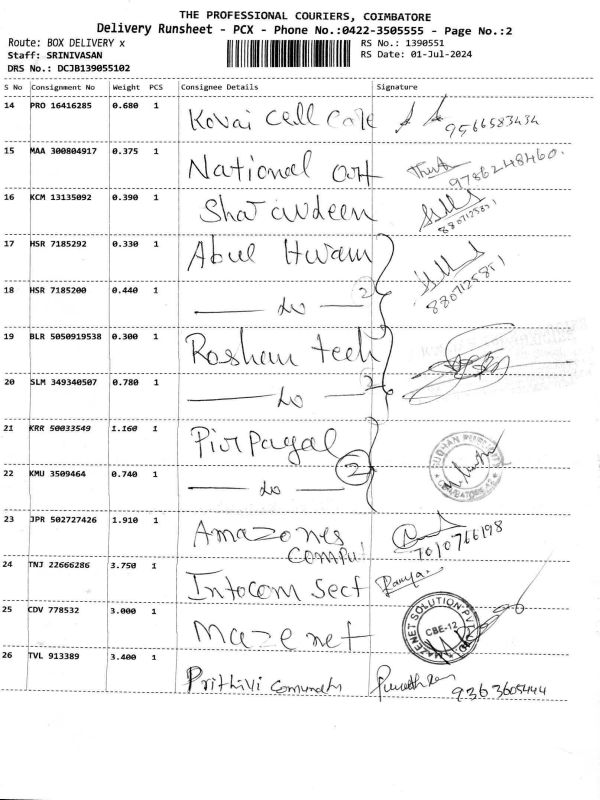 THE PROFESSIONAL COURIERS, COIMBATORE
Delivery Runsheet - PCX - Phone No.:0422-3505555 - Page No.:2
Route: BOX DELIVERY x RS No.: 1390551
Staff: SRINIVASAN RS Date: 01-Jul-2024
DRS No.: DCJB139055102
S No Consignment No Weight PCS Consignee Details Signature
14 PRO 16416285 0.680 1 Kovai Cell Cafe 9566583434
15 MAA 300804917 0.375 1 National 9786248460.
16 KCM 13135092 0.390 1 Sharawdeen 8807125851
17 HSR 7185292 0.330 1 Abul 8807125851
18 HSR 7185200 0.440 1 do 2
19 BLR 5050919538 0.300 1 Roshan tech
20 SLM 349340507 0.780 1 do 2
21 KRR 50033549 1.160 1 Pirpagal
22 KMU 3509464 0.740 1 do 2
23 JPR 502727426 1.910 1 Amazones Compu 7010766198
24 TNJ 22666286 3.750 1 Intocom Sect Ramya
25 CDV 778532 3.000 1 Mazenet MAZENET SOLUTION PVT LTD CBE-12
26 TVL 913389 3.400 1 Prithivi 9363605444